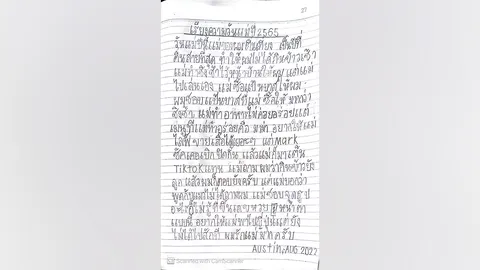 เรียงความวันแม่ปี 2565
วันแม่ปีนี้แม่ของผมตื่นเที่ยง เป็นปีที่
ตื่นสายที่สุด ทำให้ผมไม่ได้กินข้าวเช้า
แม่ทำ ไว้หน้าบ้านให้ผม แต่แม่
ไปเล่นเอง แม่ซื้อแป้นบาสให้ผม
ผมชอบแป้นบาสที่แม่ซื้อให้ มากกว่า
สิ่งอื่น แม่ทำอาหารไม่ค่อยอร่อยแต่
เมนูที่แม่ทำอร่อยคือ มาม่า อยากให้แม่
ไลฟ์ขายเสื้อได้เยอะๆ แต่ Mark
ชัคเคอเบิกปิดกั้น แล้วแม่ก็มาเต้น
TikTokแทน แม่ถามผมว่ากินข้าวยัง
ลูก แล้วผมก็ตอบยังครับ แต่แม่บอกว่า
พูดกับแม่ไม่ได้ถามผม แม่ชอบ
อะไรก็ไม่รู้ที่ขึ้น หน้าตา
แบบนี้ อยากให้แม่พาไปญี่ปุ่นแต่ยัง
ไม่ได้ไปสักที ผมรักแม่มากครับ
Austin, AUG 2022
Scanned with CamScanner